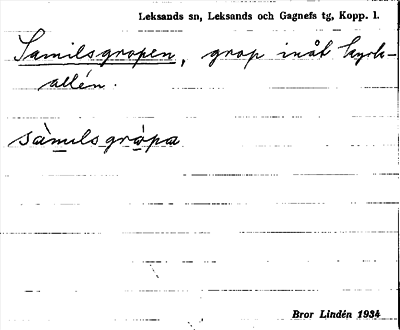 Leksands sn, Leksands och Gagnefs tg, Kopp. l.
Samilsgropen, grop inåt kyrk-
allén.
sàmilsgròpa
Bror Lindén 1934